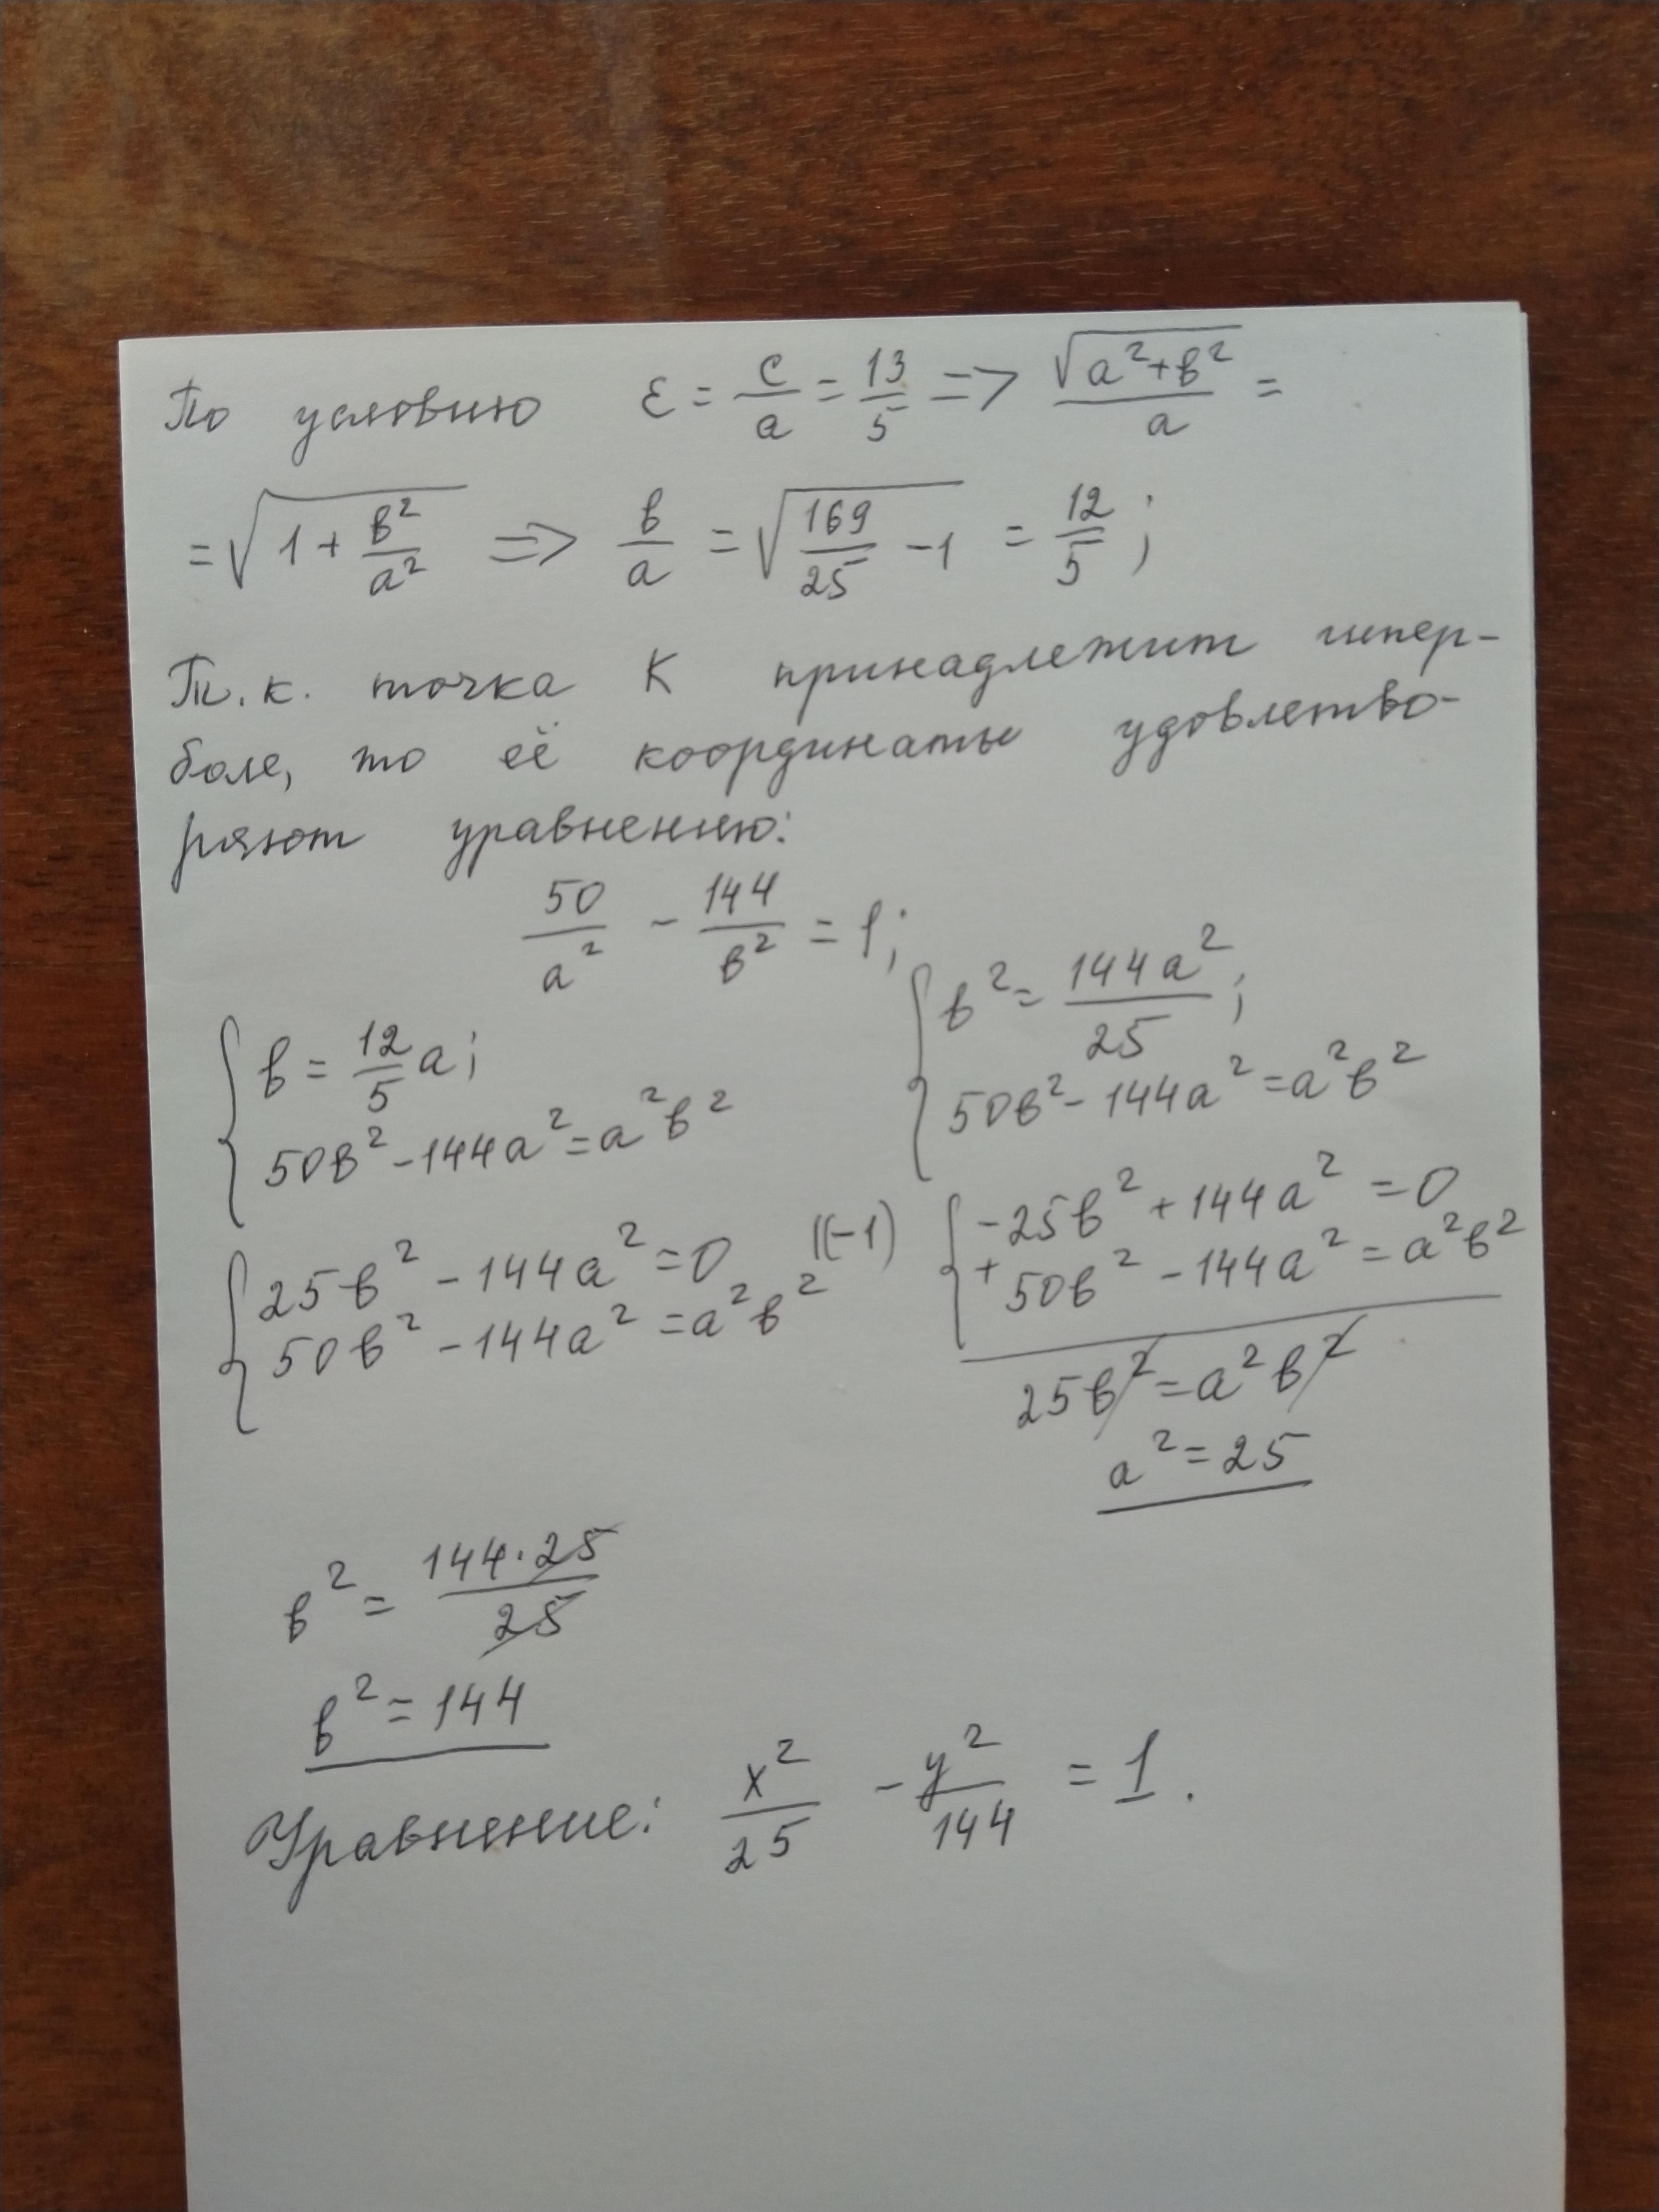 По условию ε = c/a = 13/5 => √(a²+b²)/a =
= √(1 + b²/a²) => b/a = √(169/25 − 1) = 12/5;
Т.к. точка K принадлежит гипер-
боле, то её координаты удовлетво-
ряют уравнению:
50/a² − 144/b² = 1;
{ b = 12/5 a;
50b² − 144a² = a²b²
{ b² = 144a²/25;
50b² − 144a² = a²b²
{ 25b² − 144a² = 0 |(−1)
50b² − 144a² = a²b²
{ −25b² + 144a² = 0
+ 50b² − 144a² = a²b²
25b² = a²b²
a² = 25
b² = 144·25/25
b² = 144
Уравнение: x²/25 − y²/144 = 1.